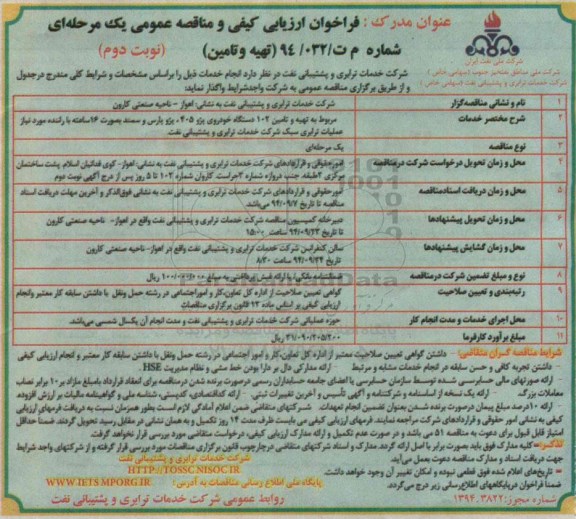 عنوان مدرک : فراخوان ارزیابی کیفی و مناقصه عمومی یک مرحله‌ای
شماره م ت/۰۳۲/ ۹۴ (تهیه وتامین) (نوبت دوم)
شرکت ملی نفت ایران
شرکت ملی مناطق نفتخیز جنوب (سهامی خاص)
شرکت خدمات ترابری و پشتیبانی نفت (سهامی خاص)
شرکت خدمات ترابری و پشتیبانی نفت در نظر دارد انجام خدمات ذیل را براساس مشخصات و شرایط کلی مندرج درجدول
و از طریق برگزاری مناقصه عمومی به شرکت واجدشرایط واگذار نماید:
۱ نام و نشانی مناقصه‌گزار شرکت خدمات ترابری و پشتیبانی نفت به نشانی: اهواز - ناحیه صنعتی کارون
۲ شرح مختصر خدمات مربوط به تهیه و تامین ۱۰۲ دستگاه خودروی پژو ۴۰۵، پژو پارس و سمند بصورت ۱۶ساعته با راننده مورد نیاز
عملیات ترابری سبک شرکت خدمات ترابری و پشتیبانی نفت
۳ نوع مناقصه یک مرحله‌ای
۴ محل و زمان تحویل درخواست شرکت درمناقصه امورحقوقی و قراردادهای شرکت خدمات ترابری و پشتیبانی نفت به نشانی اهواز- کوی فدائیان اسلام، پشت ساختمان
مرکزی ۲طبقه جنب دروازه شماره ۲حراست کارون شماره ۱۰۲ تا ۵ روز پس از درج آگهی نوبت دوم
۵ محل و زمان دریافت اسنادمناقصه امورحقوقی و قراردادهای شرکت خدمات ترابری و پشتیبانی نفت به نشانی فوق‌الذکر و آخرین مهلت دریافت اسناد
مناقصه تا تاریخ ۹۴/۰۹/۷ می‌باشد.
۶ محل و زمان تحویل پیشنهادها دبیرخانه کمیسیون مناقصه شرکت خدمات ترابری و پشتیبانی نفت واقع در اهواز- ناحیه صنعتی کارون
تا تاریخ ۹۴/۰۹/۲۳ ساعت ۱۵:۰۰
۷ محل و زمان گشایش پیشنهادها سالن کنفرانس شرکت خدمات ترابری و پشتیبانی نفت واقع در اهواز- ناحیه صنعتی کارون
تاریخ ۹۴/۰۹/۲۴ ساعت ۸/۳۰
۸ نوع و مبلغ تضمین شرکت درمناقصه ضمانتنامه بانکی یا ارائه فیش پرداختی به مبلغ ۱۰۰/۰۰۰/۰۰۰ ریال
۹ رتبه‌بندی و تعیین صلاحیت گواهی تعیین صلاحیت از اداره کل تعاون،کار و اموراجتماعی در رشته حمل ونقل با داشتن سابقه کار معتبر وانجام
ارزیابی کیفی بر اساس ماده ۱۲ قانون برگزاری مناقصات
۱۰ محل اجرای خدمات و مدت انجام کار حوزه عملیاتی شرکت خدمات ترابری و پشتیبانی نفت و مدت انجام آن یکسال شمسی می‌باشد.
۱۱ مبلغ برآورد کارفرما ریال
شرایط مناقصه گران متقاضی: - داشتن گواهی تعیین صلاحیت معتبر از اداره کل تعاون،کار و امور اجتماعی در رشته حمل ونقل با داشتن سابقه کار معتبر و انجام ارزیابی کیفی
- داشتن تجربه کافی و حسن سابقه در انجام خدمات مشابه و مرتبط - ارائه مدارکی دال بر دارا بودن خط مشی و نظام مدیریت HSE.
- ارائه صورتهای مالی حسابرسی شده توسط سازمان حسابرسی یا اعضای جامعه حسابداران رسمی درصورت برنده شدن درمناقصه برای انعقاد قرارداد بامبلغ مازاد بر۱۰ برابر نصاب
معاملات بزرگ - ارائه یک نسخه از اساسنامه و شرکتنامه و آگهی تأسیس و آخرین تغییرات ثبتی - ارائه کداقتصادی، کدپستی، شناسه ملی و گواهینامه مالیات بر ارزش افزوده
- ارائه ۱۰درصد مبلغ پیمان درصورت برنده شدن بعنوان تضمین انجام تعهدات. شرکتهای متقاضی ضمن اعلام آمادگی لازم است بطور همزمان نسبت به دریافت فرمهای ارزیابی
کیفی به نشانی امور حقوقی و قراردادهای شرکت مراجعه نمایند. فرمهای ارزیابی کیفی می بایست ظرف مدت ۱۴ روز تکمیل و به همان نشانی در مقابل رسید تحویل گردند. ضمنا حداقل
امتیاز قابل قبول برای دعوت به مناقصه ۵۱ می باشد و در صورت عدم تکمیل و ارائه مدارک ارزیابی کیفی، درخواست متقاضی مورد بررسی قرار نخواهد گرفت.
تذکر:- کلیه مدارک فوق باید بصورت برابر با اصل ارائه گردد. مدارک و اسناد شرکتهای متقاضی درچارچوب قانون برگزاری مناقصات مورد بررسی قرار گرفته و از شرکتهای واجد شرایط
جهت دریافت اسناد و مدارک مناقصه دعوت بعمل می‌آید.
- تاریخهای اعلام شده فوق قطعی نبوده و امکان تغییر آن وجود خواهد داشت.
ضمنا فراخوان درپایگاههای اطلاع‌رسانی زیر درج می‌گردد.
شرکت خدمات ترابری و پشتیبانی نفت
HTTP://TOSSC.NISOC.IR
پایگاه ملی اطلاع رسانی مناقصات به آدرس : WWW.IETS.MPORG.IR
شماره مجوز: ۱۳۹۴.۳۸۲۲
روابط عمومی شرکت خدمات ترابری و پشتیبانی نفت